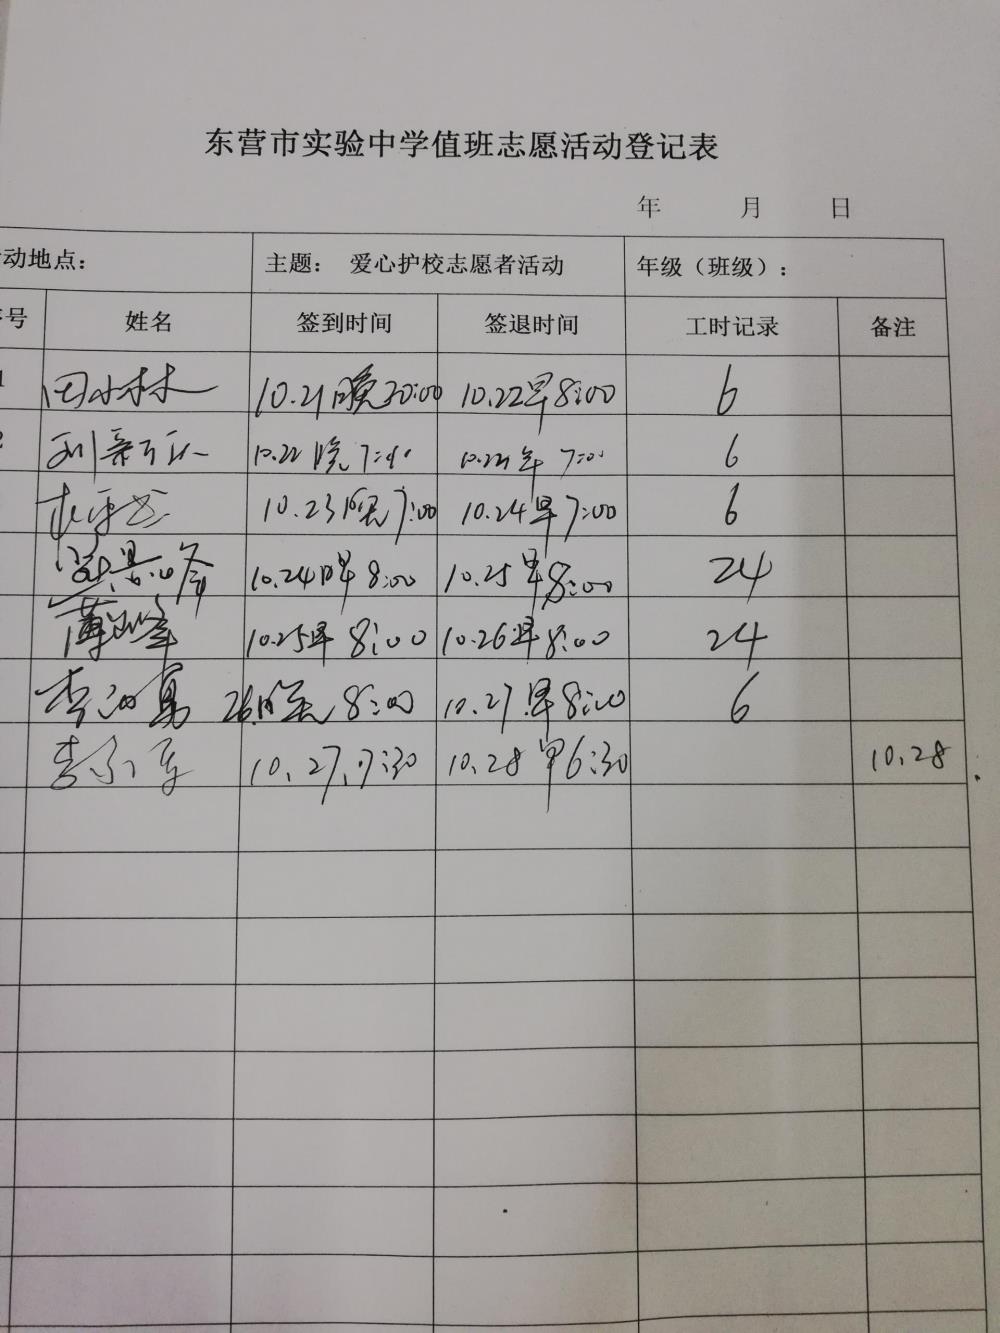 东营市实验中学值班志愿活动登记表
年 月 日
动地点： 主题： 爱心护校志愿者活动 年级（班级）：
号 姓名 签到时间 签退时间 工时记录 备注
1 田小林 10.21晚20:00 10.22早8:00 6
2 10.22晚 7:00 7:00 6
10.23晚7:00 10.24早7:00 6
10.24早8:00 10.25早8:00 24
10.25早 8:00 10.26早8:00 24
26.晚 8:00 10.27.早8:00 6
10.27.7:30 10.28 早6:30 10.28